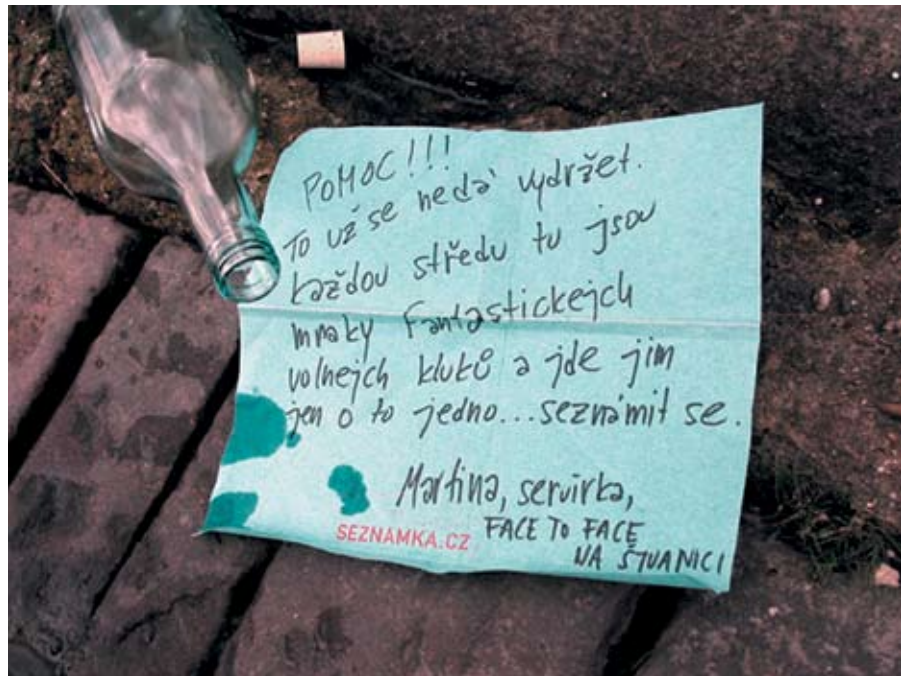 POMOC!!!
To už se nedá vydržet.
každou středu tu jsou
mraky fantastickejch
volnejch kluků a jde jim
jen o to jedno...seznámit se.
Martina, servírka,
SEZNAMKA.CZ FACE TO FACE
NA ŠTVANICI